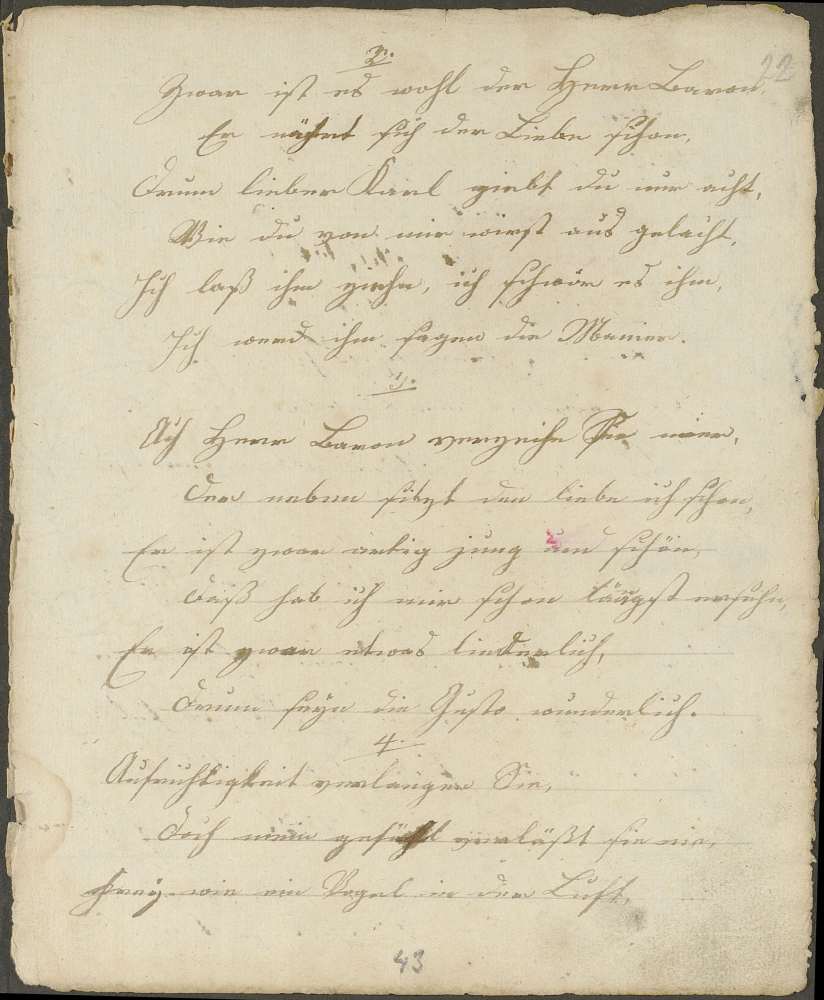 22
2.
Zwar ist es wohl der Herr Baron,
Er nähret sich der Liebe schon,
Drum lieber Karl giebst du nur acht,
Wie du von mir wirst aus gelacht,
Ich laß ihn gehn, ich schwör es ihm,
Ich werd ihm sagen die Manier.
3.
Ach Herr Baron verzeihe Sie mier,
Der neben sitzt den liebe ich schon,
Er ist zwar artig jung und schön,
Daß hab ich mir schon längst ersehn,
Er ist zwar etwas liederlich,
Drum seyn die Gusto wunderlich.
4.
Aufrichtigkeit verlangen Sie,
Doch mein gefühl verläßt sie nie,
Frey wie ein Vogel in der Luft,
43